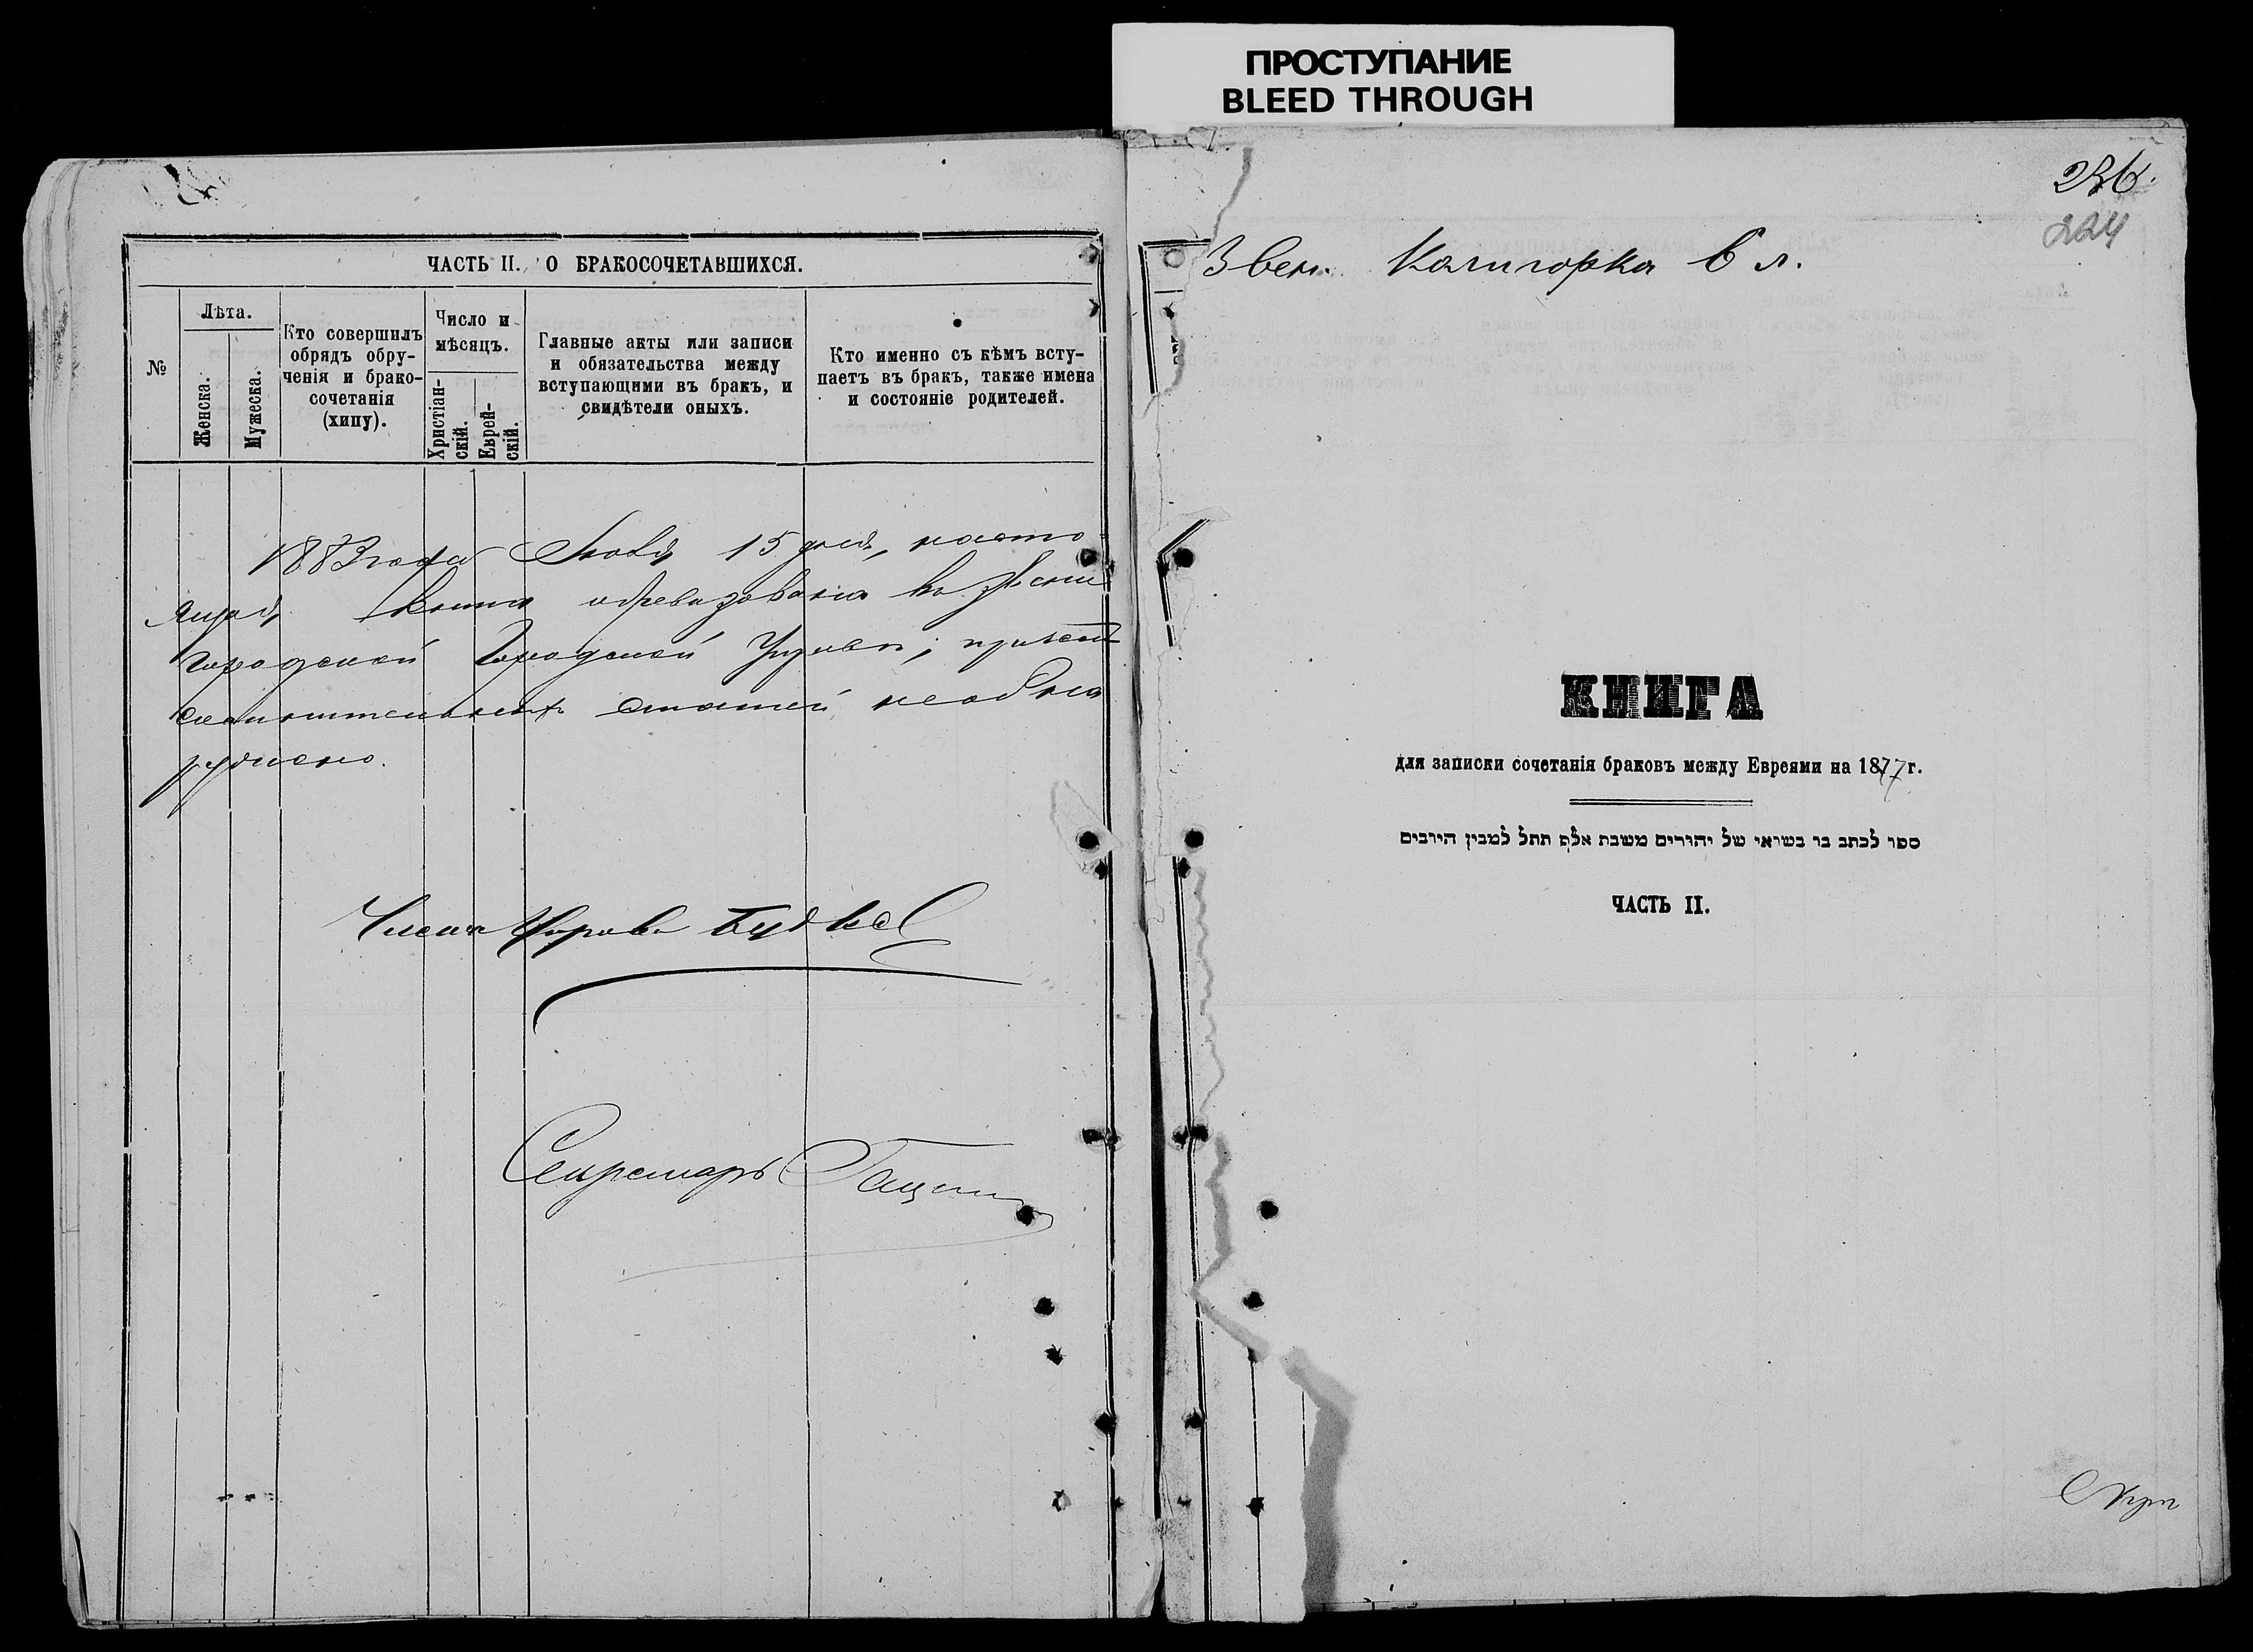 ПРОСТУПАНИЕ
BLEED THROUGH
ЧАСТЬ II. О БРАКОСОЧЕТАВШИХСЯ.
№
Лѣта.
Женска.
Мужеска.
Кто совершилъ
обрядъ обру-
ченія и брако-
сочетанія
(хипу).
Число и
мѣсяцъ.
Христіан-
скій.
Еврей-
скій.
Главные акты или записи
и обязательства между
вступающими въ бракъ, и
свидѣтели оныхъ.
Кто именно съ кѣмъ всту-
паетъ въ бракъ, также имена
и состояніе родителей.
1883 года 15 дня, насто
ящая книга обревизована въ Звени
городской Городской Управѣ, причемъ
сомнительныхъ статей необна
ружено.
Членъ Управы
Секретарь
236.
224
Звен. Калигорка 6 л.
КНИГА
для записки сочетанія браковъ между Евреями на 1877 г.
ספר לכתב בו בשואי של יהודים משבת אלף תתל למבין היובים
ЧАСТЬ II.